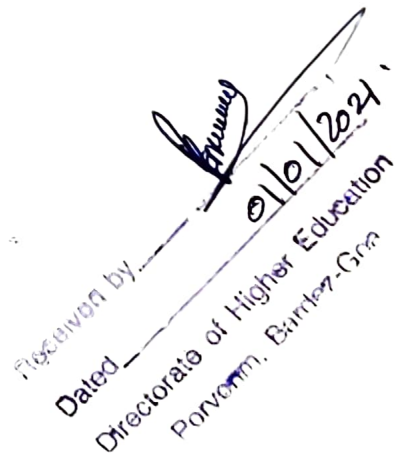 Received by
Dated 01/01/2021
Directorate of Higher Education
Porvorim, Bardez-Goa